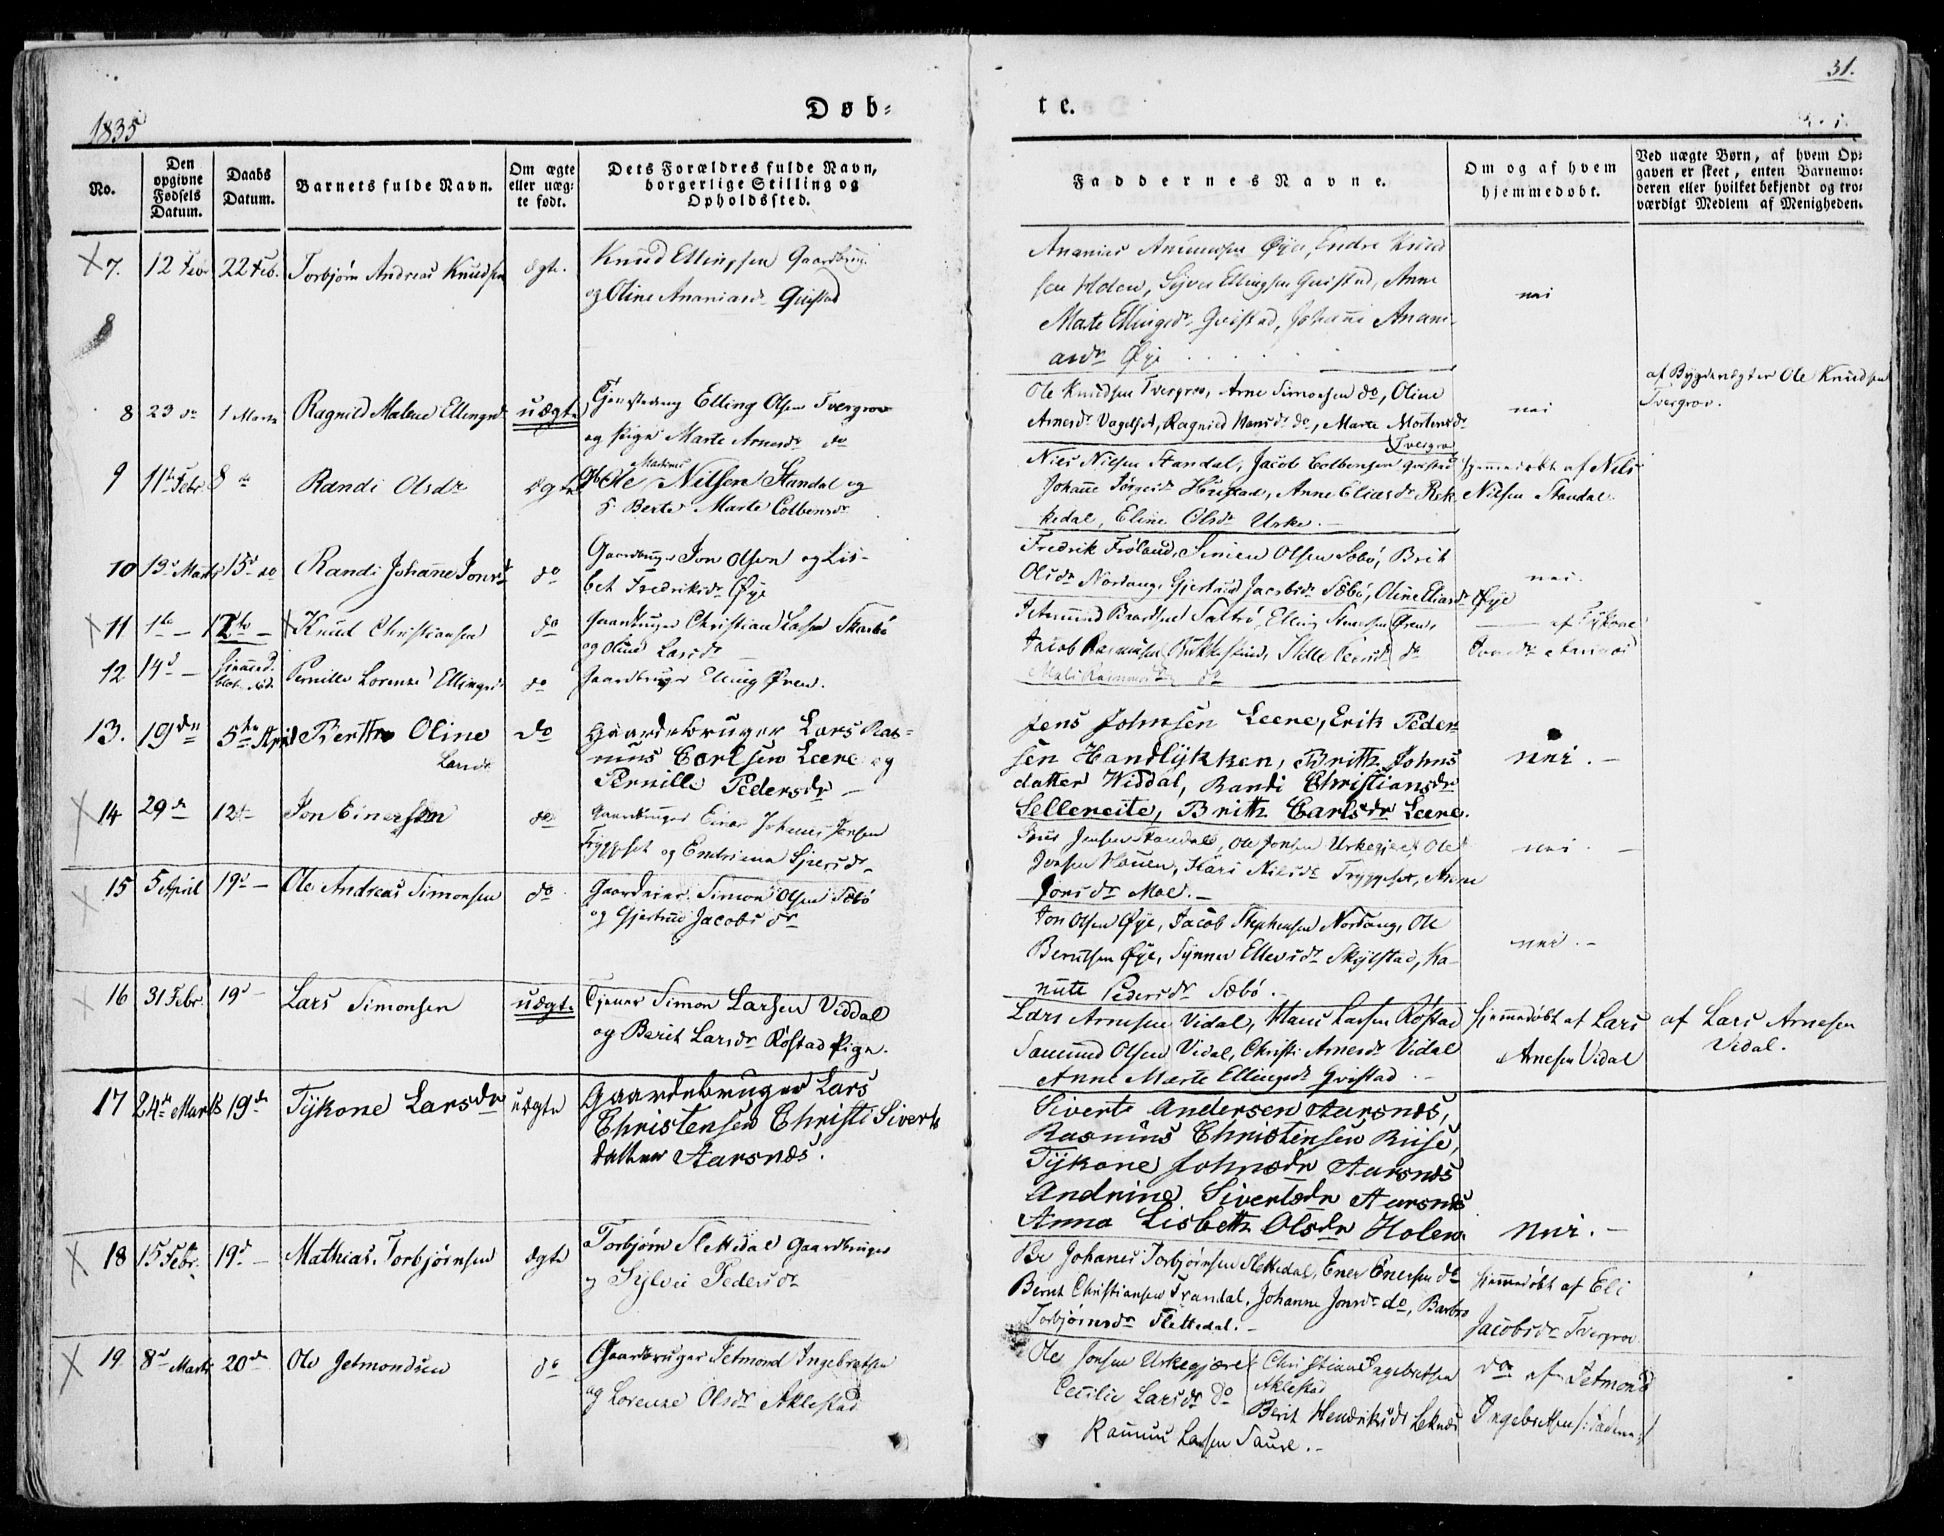 31.
1835
Døb-
te.
No.
Den opgivne Fødsels Datum.
Daabs Datum.
Barnets fulde Navn.
Om ægte eller uægte født.
Dets Forældres fulde Navn, borgerlige Stilling og Opholdssted.
Faddernes Navne.
Om og af hvem hjemmedøbt.
Ved uægte Børn, af hvem Opgaven er skeet, enten Barnemoderen eller hvilket bekjendt og troværdigt Medlem af Menigheden.
7. 12 Febr 22 Feb. Torbjørn Andreas Knudsen ægte.
Knud Ellingsen Gaardbrug.
og Oline Ananiasdr Qvistad
Ananias Øye, Endre Knud
sen Holen, Syver Ellingsen Qvistad, Anne
Marte Ellingsdr Qvistad, Johanne Anani-
asdr Øye
nei
8
8 23 do 1 Marts Ragnild Malene Ellingsdr uægte
Elling Olsen Tvergrov
og Pige Marte Arnesdr do
Ole Knudsen Tvergrov, Arne Simonsen do, Oline
Arnesdr Vagelset, Ragnild Hansdr do, Marte Mortensdr
Tvergrov
nei
af Bygdevægter Ole Knudsen
Tvergrov.
9 11te Febr 8 do Randi Olsdr ægte
Ole Nilsen Standal og
Berte Marte Colbensdr
Nils Nilsen Standal, Jacob Colbensen Qvistad
Johanne Jørgensdr Hustad, Anne Eliasdr Rek
kedal, Eline Olsdr Urke.
Hjemmedøbt af Nils
Nilsen Standal
10 13d Marts 15d do Randi Johanne Jonsdr do
Gaardbruger Jon Olsen og Lis-
bet Fredriksdr Øye
Fredrik Frøland, Simen Olsen Sæbø, Brit
Olsdr Nordang, Gjertrud Jacobsdr Sæbø, Oline Eliasdr Øye
nei.
11 1te - 12te - Knud Christiansen do
Gaardbruger Christian Larsen Skarbø
og Oline Larsdr
Jetmund Baardsen Sætrø, Elling Øren,
Jacob Rasmusen
do
Mali Rasmusdr do
af Tykone
12 14d - Pernille Lorenze Ellingsdr do
Gaardbruger Elling Øren.
13. 19de 5te April Berthe Oline
Larsdr
do
Gaardebruger Lars Ras-
mus Carlsen Leere og
Pernille Pedersdr -
Jens Johnsen Leere, Erik Peder-
sen Handlykken, Brith Johns
datter Widdal, Randi Christiansdr
Selleneite, Brith Carlsdr Leere.
nei. -
14 29de 12te Jon Einersen do
Gaardbruger Einer Johannes Jensen
Tryggeset og Endriana Sjursdr
Jens Jensen Standal, Ole Jonsen Urkegjeret, Ole
Jonsen Hauen, Kari Nilsdr Tryggeset, Anne
Jonsdr Moe. -
nei. -
15 5 April 19d - Ole Andreas Simonsen do
Simon Olsen Sæbø
og Gjertrud Jacobsdr
Jon Olsen Øye, Jacob Stephensen Nordang, Ole
Berntsen Øye, Synnev Ellevsdr Skylstad, Ka-
nute Pedersdr Sæbø.
nei. -
16 31 Febr. 19d - Lars Simonsen uægte
Tjener Simon Larsen Viddal
og Berit Larsdr Røstad Pige.
Lars Arnesen Vidal, Hans Larsen Røstad
Samund Olsen Vidal, Christi Arnesdr Vidal
Anne Marte Ellingsdr Qvistad
Hjemmedøbt af Lars
Arnesen Vidal
af Lars Arnesen
Vidal.
17 24de Marts 19de Tykone Larsdr uægte
Gaardebruger Lars
Christensen Christi Siverts
datter Aarsnæs.
Siverts Andersen Aarsnæs,
Rasmus Christensen Riise,
Tykone Johnsdr Aarsnæs
Andrine Sivertsdr Aarsnæs
Anna Lisbeth Olsdr Holen
nei. -
18 15 Febr. 19d - Mathias Torbjørnsen ægte
Torbjørn Slettedal Gaardbruger
og Sylvei Pedersdr
Johanes Torbjørnsen Slettedal, Ener Enersen do
Bernt Christiansen Trandal, Johanne Jonsdr do, Barbro
Torbjørnsdr Slettedal. -
Hjemmedøbt af Eli
Jacobsdr Tvergrov
19 8d Marts 20de Ole Jetmondsen do
Gaardbruger Jetmond Ingebretsen
og Lorenze Olsdr Aklestad
Ole Jonsen Urkegjære
Cecilie Larsdr do
Christian Ingebretsen
Aklestad
Berit Hendriksdr Leknæs
Rasmus Larsen Saure. -
do af Jetmond
Ingebretsen